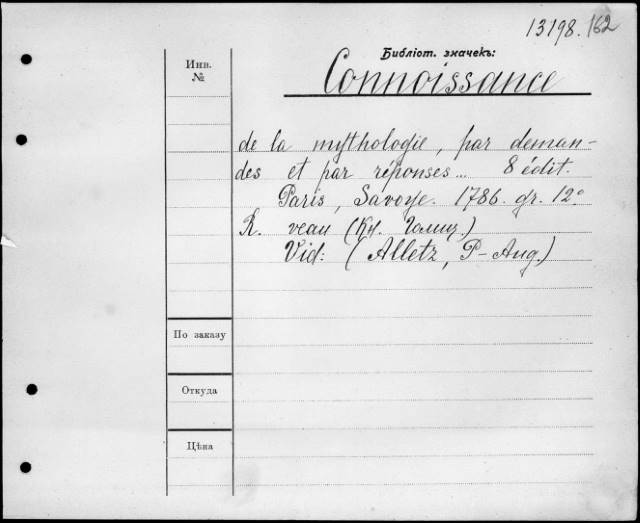 13198.162
Библіот. значекъ:
Инв.
№
Connoissance
de la mythologie, par deman-
des et par réponses... 8 édit.
Paris, Savoye. 1786. gr. 12°
R. veau (Кн. Голиц.)
Vid: (Alletz, P-Aug.)
По заказу
Откуда
Цѣна